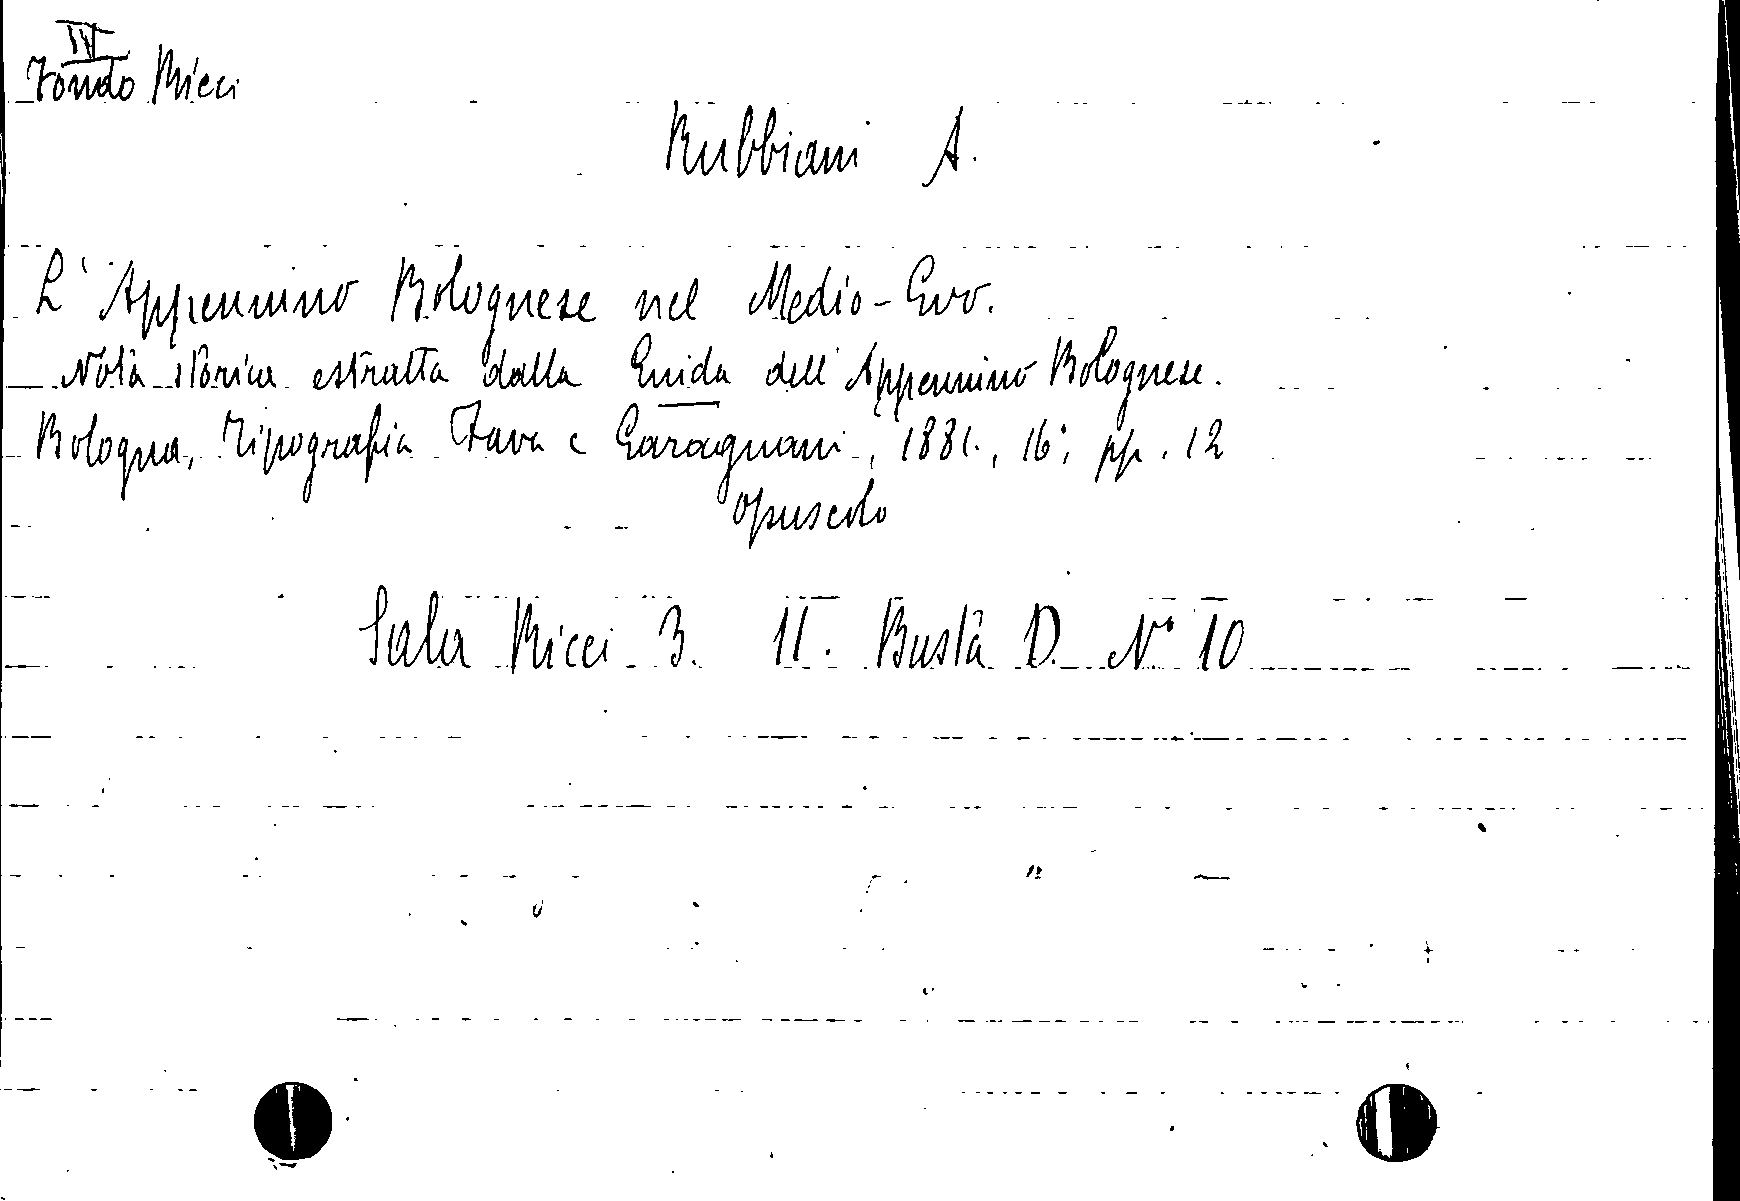 IV
Fondo Ricci
Rubbiani A.
L'Appennino Bolognese nel Medio-Evo.
Nota storica estratta dalla Guida dell'Appennino Bolognese.
Bologna, Tipografia Fava e Garagnani, 1881., 16°, pp. 12
opuscolo
Sala Ricci 3. 11. Busta D. N° 10